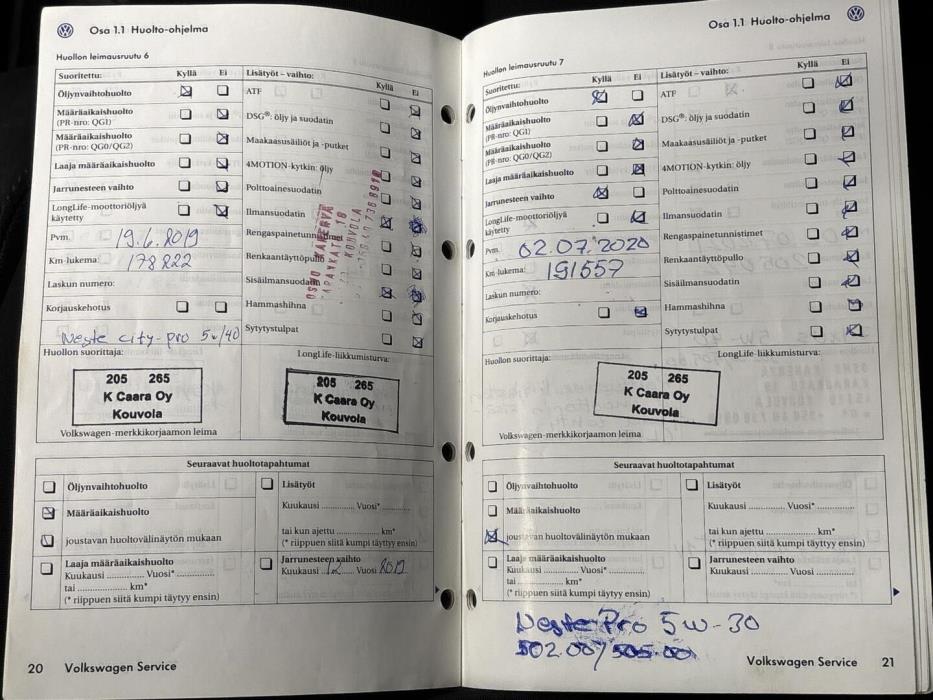 Osa 1.1 Huolto-ohjelma
Huollon leimausruutu 6
Suoritettu: Kyllä Ei
Öljynvaihtohuolto
Määräaikaishuolto
(PR-nro: QG1)
Määräaikaishuolto
(PR-nro: QG0/QG2)
Laaja määräaikaishuolto
Jarrunesteen vaihto
LongLife-moottoriöljyä
käytetty
Pvm. 19.6.2019
Km-lukema: 178822
Laskun numero:
Korjauskehotus
Neste city-pro 5w/40
Lisätyöt – vaihto: Kyllä Ei
ATF
DSG®: öljy ja suodatin
Maakaasusäiliöt ja -putket
4MOTION-kytkin: öljy
Polttoainesuodatin
Ilmansuodatin
Rengaspainetunnistimet
Renkaantäyttöpullo
Sisäilmansuodatin
Hammashihna
Sytytystulpat
KOUVOLA
Huollon suorittaja:
205 265
K Caara Oy
Kouvola
Volkswagen-merkkikorjaamon leima
LongLife-liikkumisturva:
205 265
K Caara Oy
Kouvola
Seuraavat huoltotapahtumat
Öljynvaihtohuolto
Määräaikaishuolto
joustavan huoltovälinäytön mukaan
Laaja määräaikaishuolto
Kuukausi ............. Vuosi* .............
tai ............. km*
(* riippuen siitä kumpi täytyy ensin)
Lisätyöt
Kuukausi ............. Vuosi* .............
tai kun ajettu ............. km*
(* riippuen siitä kumpi täyttyy ensin)
Jarrunesteen vaihto
Kuukausi ............. Vuosi 2019
20 Volkswagen Service
Osa 1.1 Huolto-ohjelma
Huollon leimausruutu 7
Suoritettu: Kyllä Ei
Öljynvaihtohuolto
Määräaikaishuolto
(PR-nro: QG1)
Määräaikaishuolto
(PR-nro: QG0/QG2)
Laaja määräaikaishuolto
Jarrunesteen vaihto
LongLife-moottoriöljyä
käytetty
Pvm. 02.07.2020
Km-lukema: 191557
Laskun numero:
Korjauskehotus
Lisätyöt – vaihto: Kyllä Ei
ATF
DSG®: öljy ja suodatin
Maakaasusäiliöt ja -putket
4MOTION-kytkin: öljy
Polttoainesuodatin
Ilmansuodatin
Rengaspainetunnistimet
Renkaantäyttöpullo
Sisäilmansuodatin
Hammashihna
Sytytystulpat
Huollon suorittaja:
LongLife-liikkumisturva:
205 265
K Caara Oy
Kouvola
Volkswagen-merkkikorjaamon leima
Seuraavat huoltotapahtumat
Öljynvaihtohuolto
Määräaikaishuolto
joustavan huoltovälinäytön mukaan
Laaja määräaikaishuolto
Kuukausi ............. Vuosi* .............
tai ............. km*
(* riippuen siitä kumpi täytyy ensin)
Lisätyöt
Kuukausi ............. Vuosi* .............
tai kun ajettu ............. km*
(* riippuen siitä kumpi täyttyy ensin)
Jarrunesteen vaihto
Kuukausi ............. Vuosi .............
Neste Pro 5w-30
502.00/505.00
Volkswagen Service 21